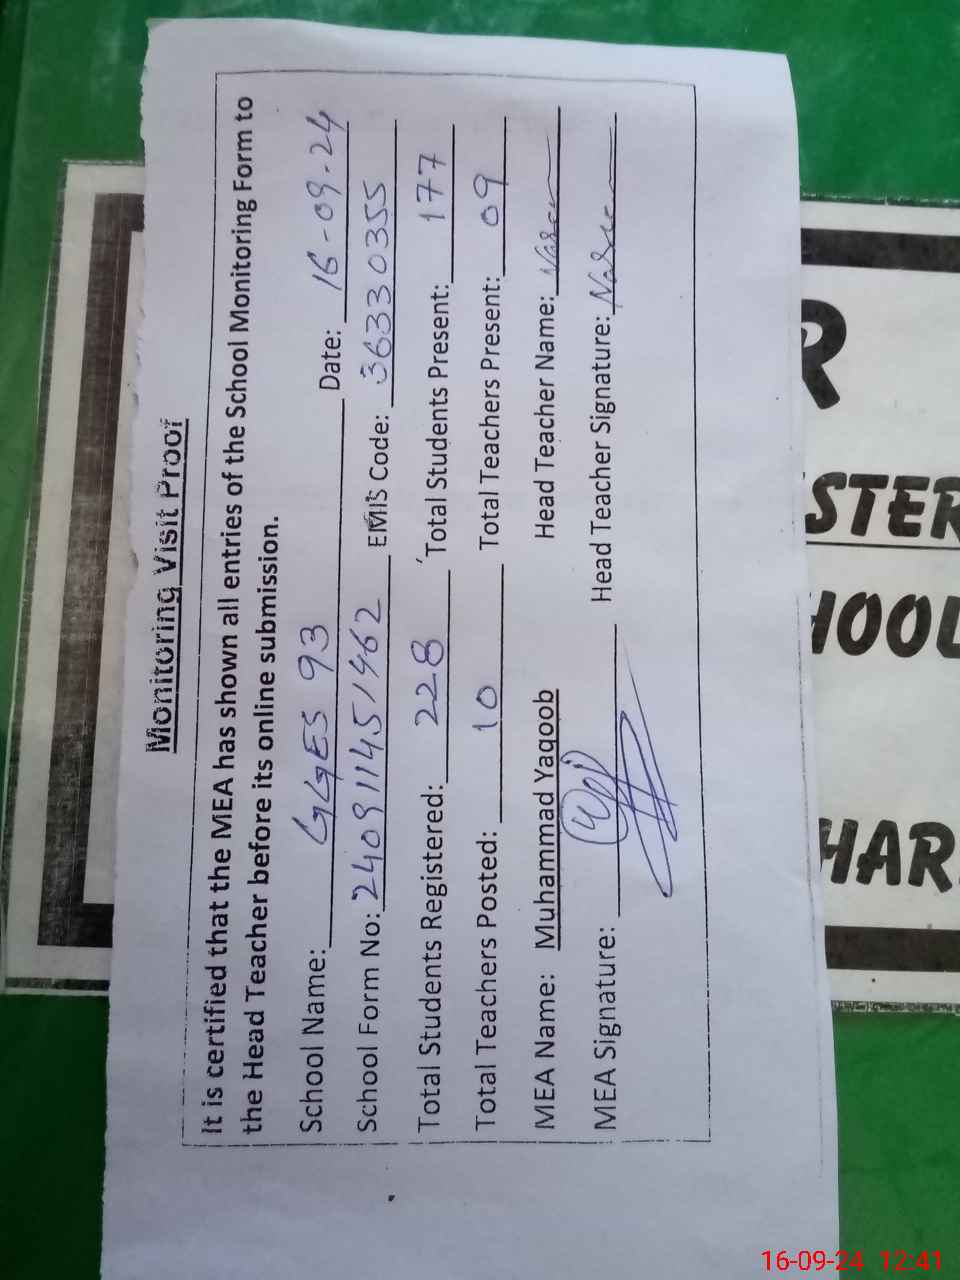 Monitoring Visit Proof
It is certified that the MEA has shown all entries of the School Monitoring Form to
the Head Teacher before its online submission.
School Name: GGES 93 Date: 16-09-24
School Form No: 240911451462 EMIS Code: 36330355
Total Students Registered: 228 Total Students Present: 177
Total Teachers Posted: 10 Total Teachers Present: 09
MEA Name: Muhammad Yaqoob Head Teacher Name:
MEA Signature: Head Teacher Signature:
R
STER
HOOL
HAR
16-09-24 12:41